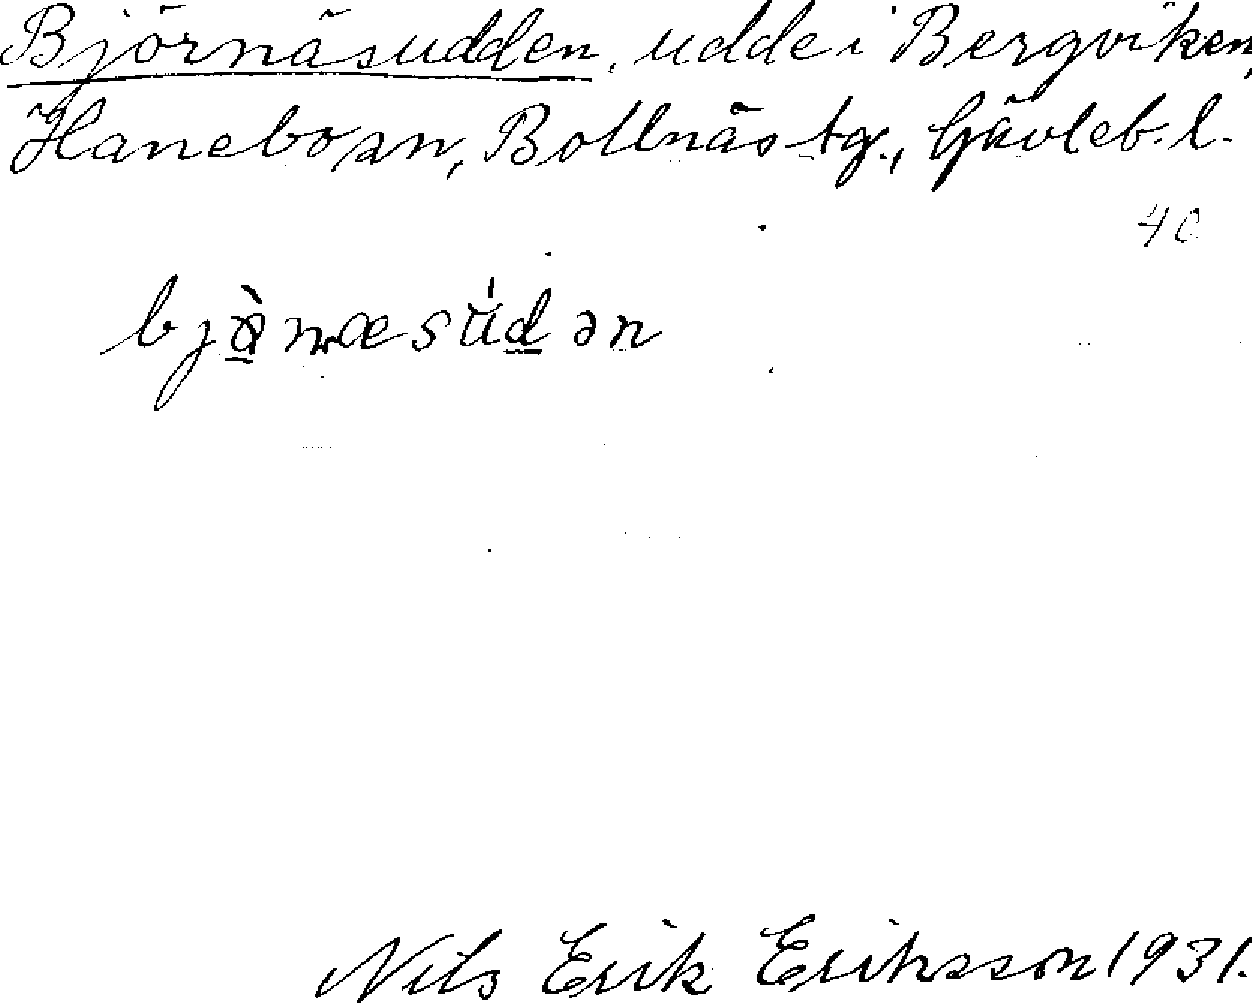 Björnäsudden, udde i Bergviken,
Hanebo sn, Bollnäs tg., Gävleb. l.
40
bjɷ̀næsúdən
Nils Erik Eriksson 1931.